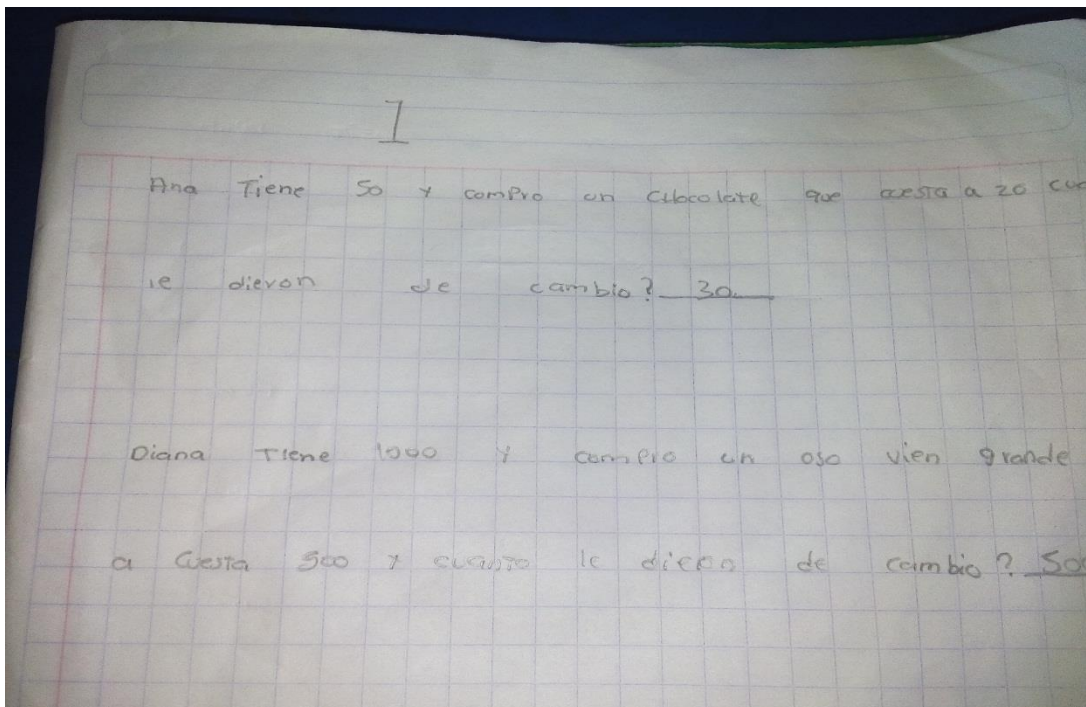 I
Ana Tiene 50 y compro un Chocolate que cuesta a 20
le dieron de cambio? 30
Diana Tiene 1000 y compro un oso vien grande
a Cuesta 500 y cuanto le diero de cambio?